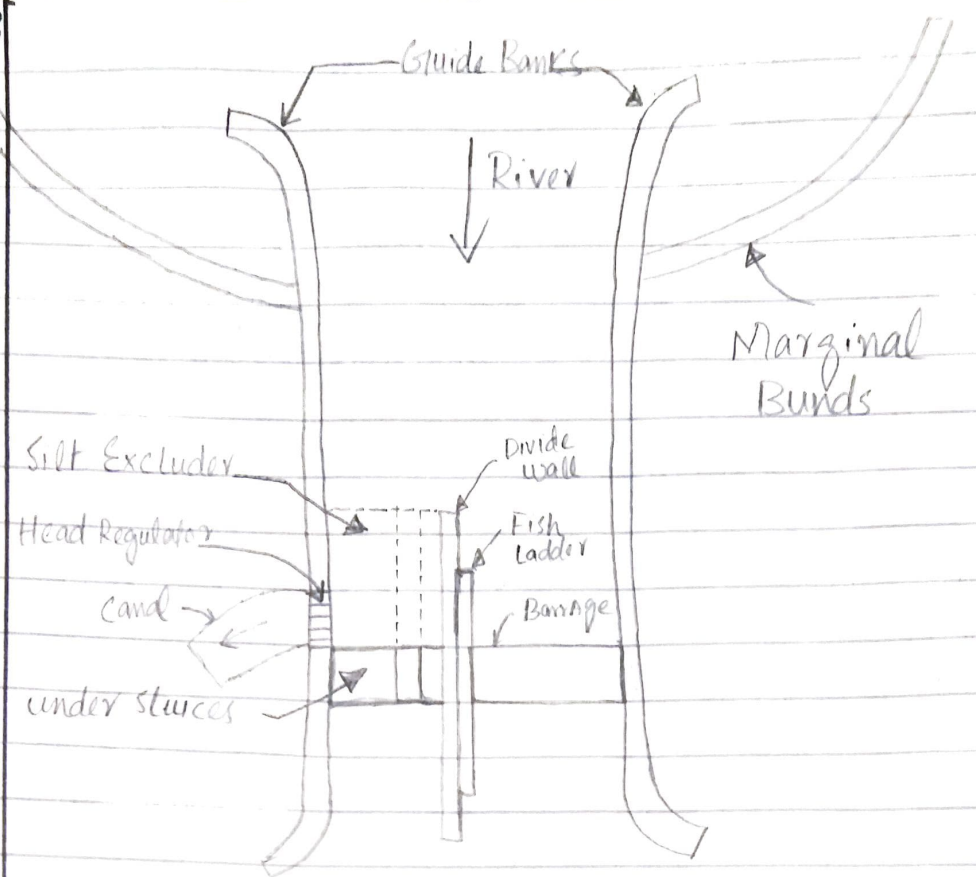 Guide Banks
River
Marginal
Bunds
Silt Excluder
Divide
Wall
Head Regulator
Fish
Ladder
Canal
Barrage
under sluices